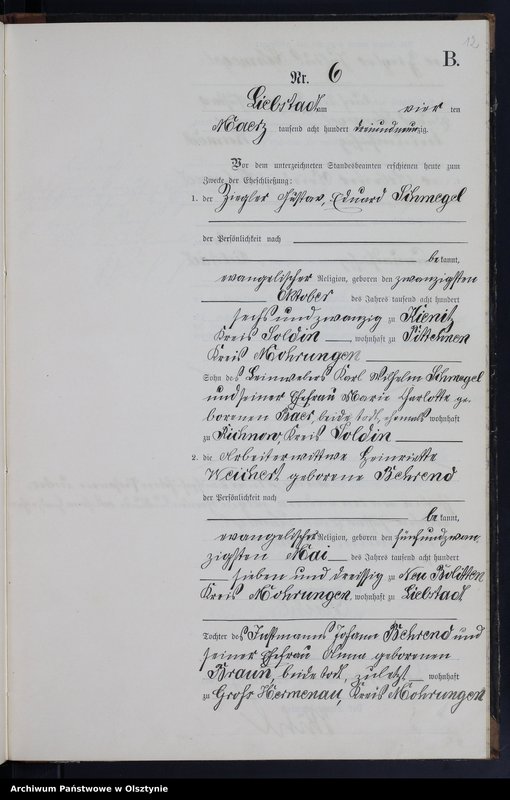 12.
B.
Nr. 6
Liebstadt am vier ten
Maerz tausend acht hundert dreiundneunzig.
Vor dem unterzeichneten Standesbeamten erschienen heute zum
Zwecke der Eheschließung:
1. der Ziegler Gustav, Eduard Schmegel
der Persönlichkeit nach
be kannt,
evangelischer Religion, geboren den zwanzigsten
Oktober des Jahres tausend acht hundert
sechs und zwanzig zu Kienitz
Kreis Soldin, wohnhaft zu
Kreis Mohrungen
Sohn des Leinwebers Karl Wilhelm Schmegel
und seiner Ehefrau Marie Charlotte ge-
borenen Baer, beide todt, ehemals wohnhaft
zu Richnow, Kreis Soldin
2. die Arbeiterwittwe Henriette
Weichert geborene Behrend
der Persönlichkeit nach
be kannt,
evangelischer Religion, geboren den fünfundzwan-
zigsten Mai des Jahres tausend acht hundert
sieben und dreissig zu Neu Bolitten
Kreis Mohrungen, wohnhaft zu Liebstadt
Tochter des Instmanns Johann Behrend und
seiner Ehefrau Anna geborenen
Braun, beide todt, zuletzt wohnhaft
zu Groß Hermenau, Kreis Mohrungen
Archiwum Państwowe w Olsztynie